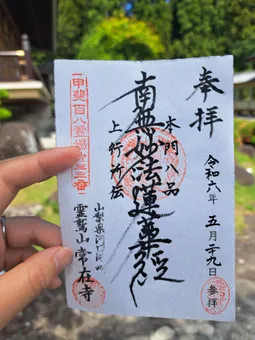 奉拝
令和六年 五月二十九日
参拝
本門八品
南無妙法蓮華経
上行所伝
甲斐百八霊場
三番
山梨県河口湖町
霊鷲山 常在寺